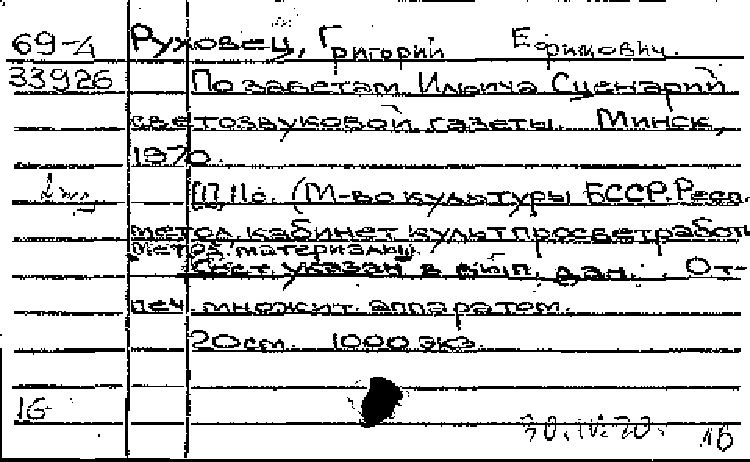 69-4 Руховец, Григорий Ефимович.
33926 По заветам Ильича Сценарий
светозвуковой газеты. Минск,
1970.
11 с. (М-во культуры БССР. Респ.
метод. кабинет культпросветработы
Метод. материалы).
Сост. указан в вып. дан. От-
печ. множит. аппаратом.
20 см. 1000 экз.
16
30.IV.70. 16